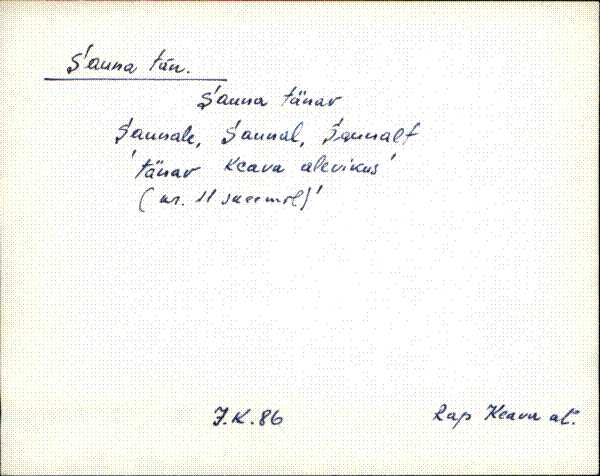 Sauna tän.
Sauna tänav
Saunale, Saunal, Saunalt
'tänav Keava alevikus'
(nr. 11 skeemil)'
J.K.86 Rap Keava al.